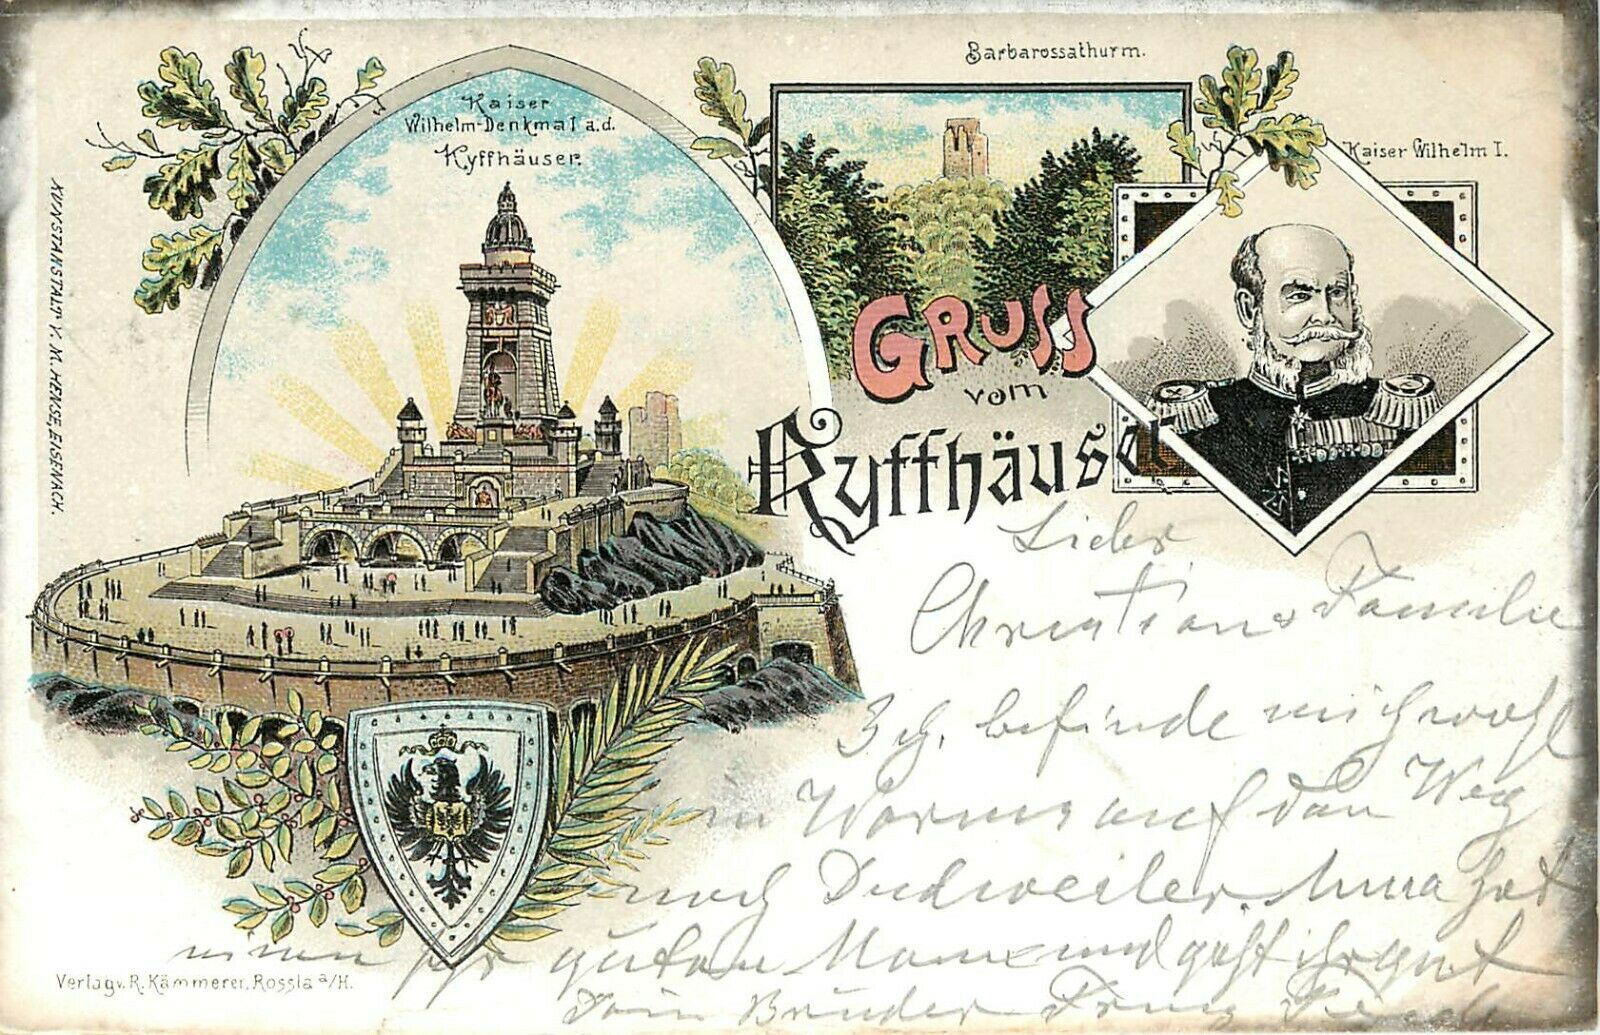 Kaiser
Wilhelm-Denkmal a.d.
Kyffhäuser.
Barbarossathurm.
Kaiser Wilhelm I.
KUNSTANSTALT V. M. HENSE, EISENACH.
GRUSS
vom
Kyffhäuser
Lieber
Christian & Familie
Ich befinde mich wohl
in Worms auf dem Weg
nach Dudweiler Anna hat
einen guten Mann und geht ihr gut
Dein Bruder Franz
Verlag v. R. Kämmerer, Rossla a/H.